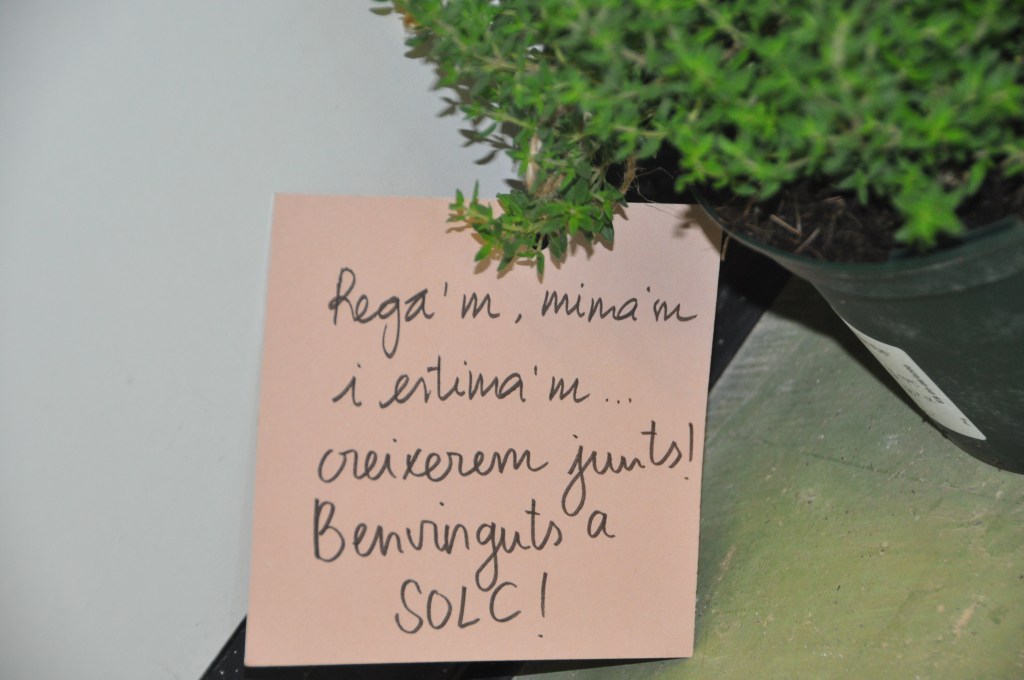 Regà'm, mima'm
i estima'm...
creixerem junts!
Benvinguts a
SOLC!